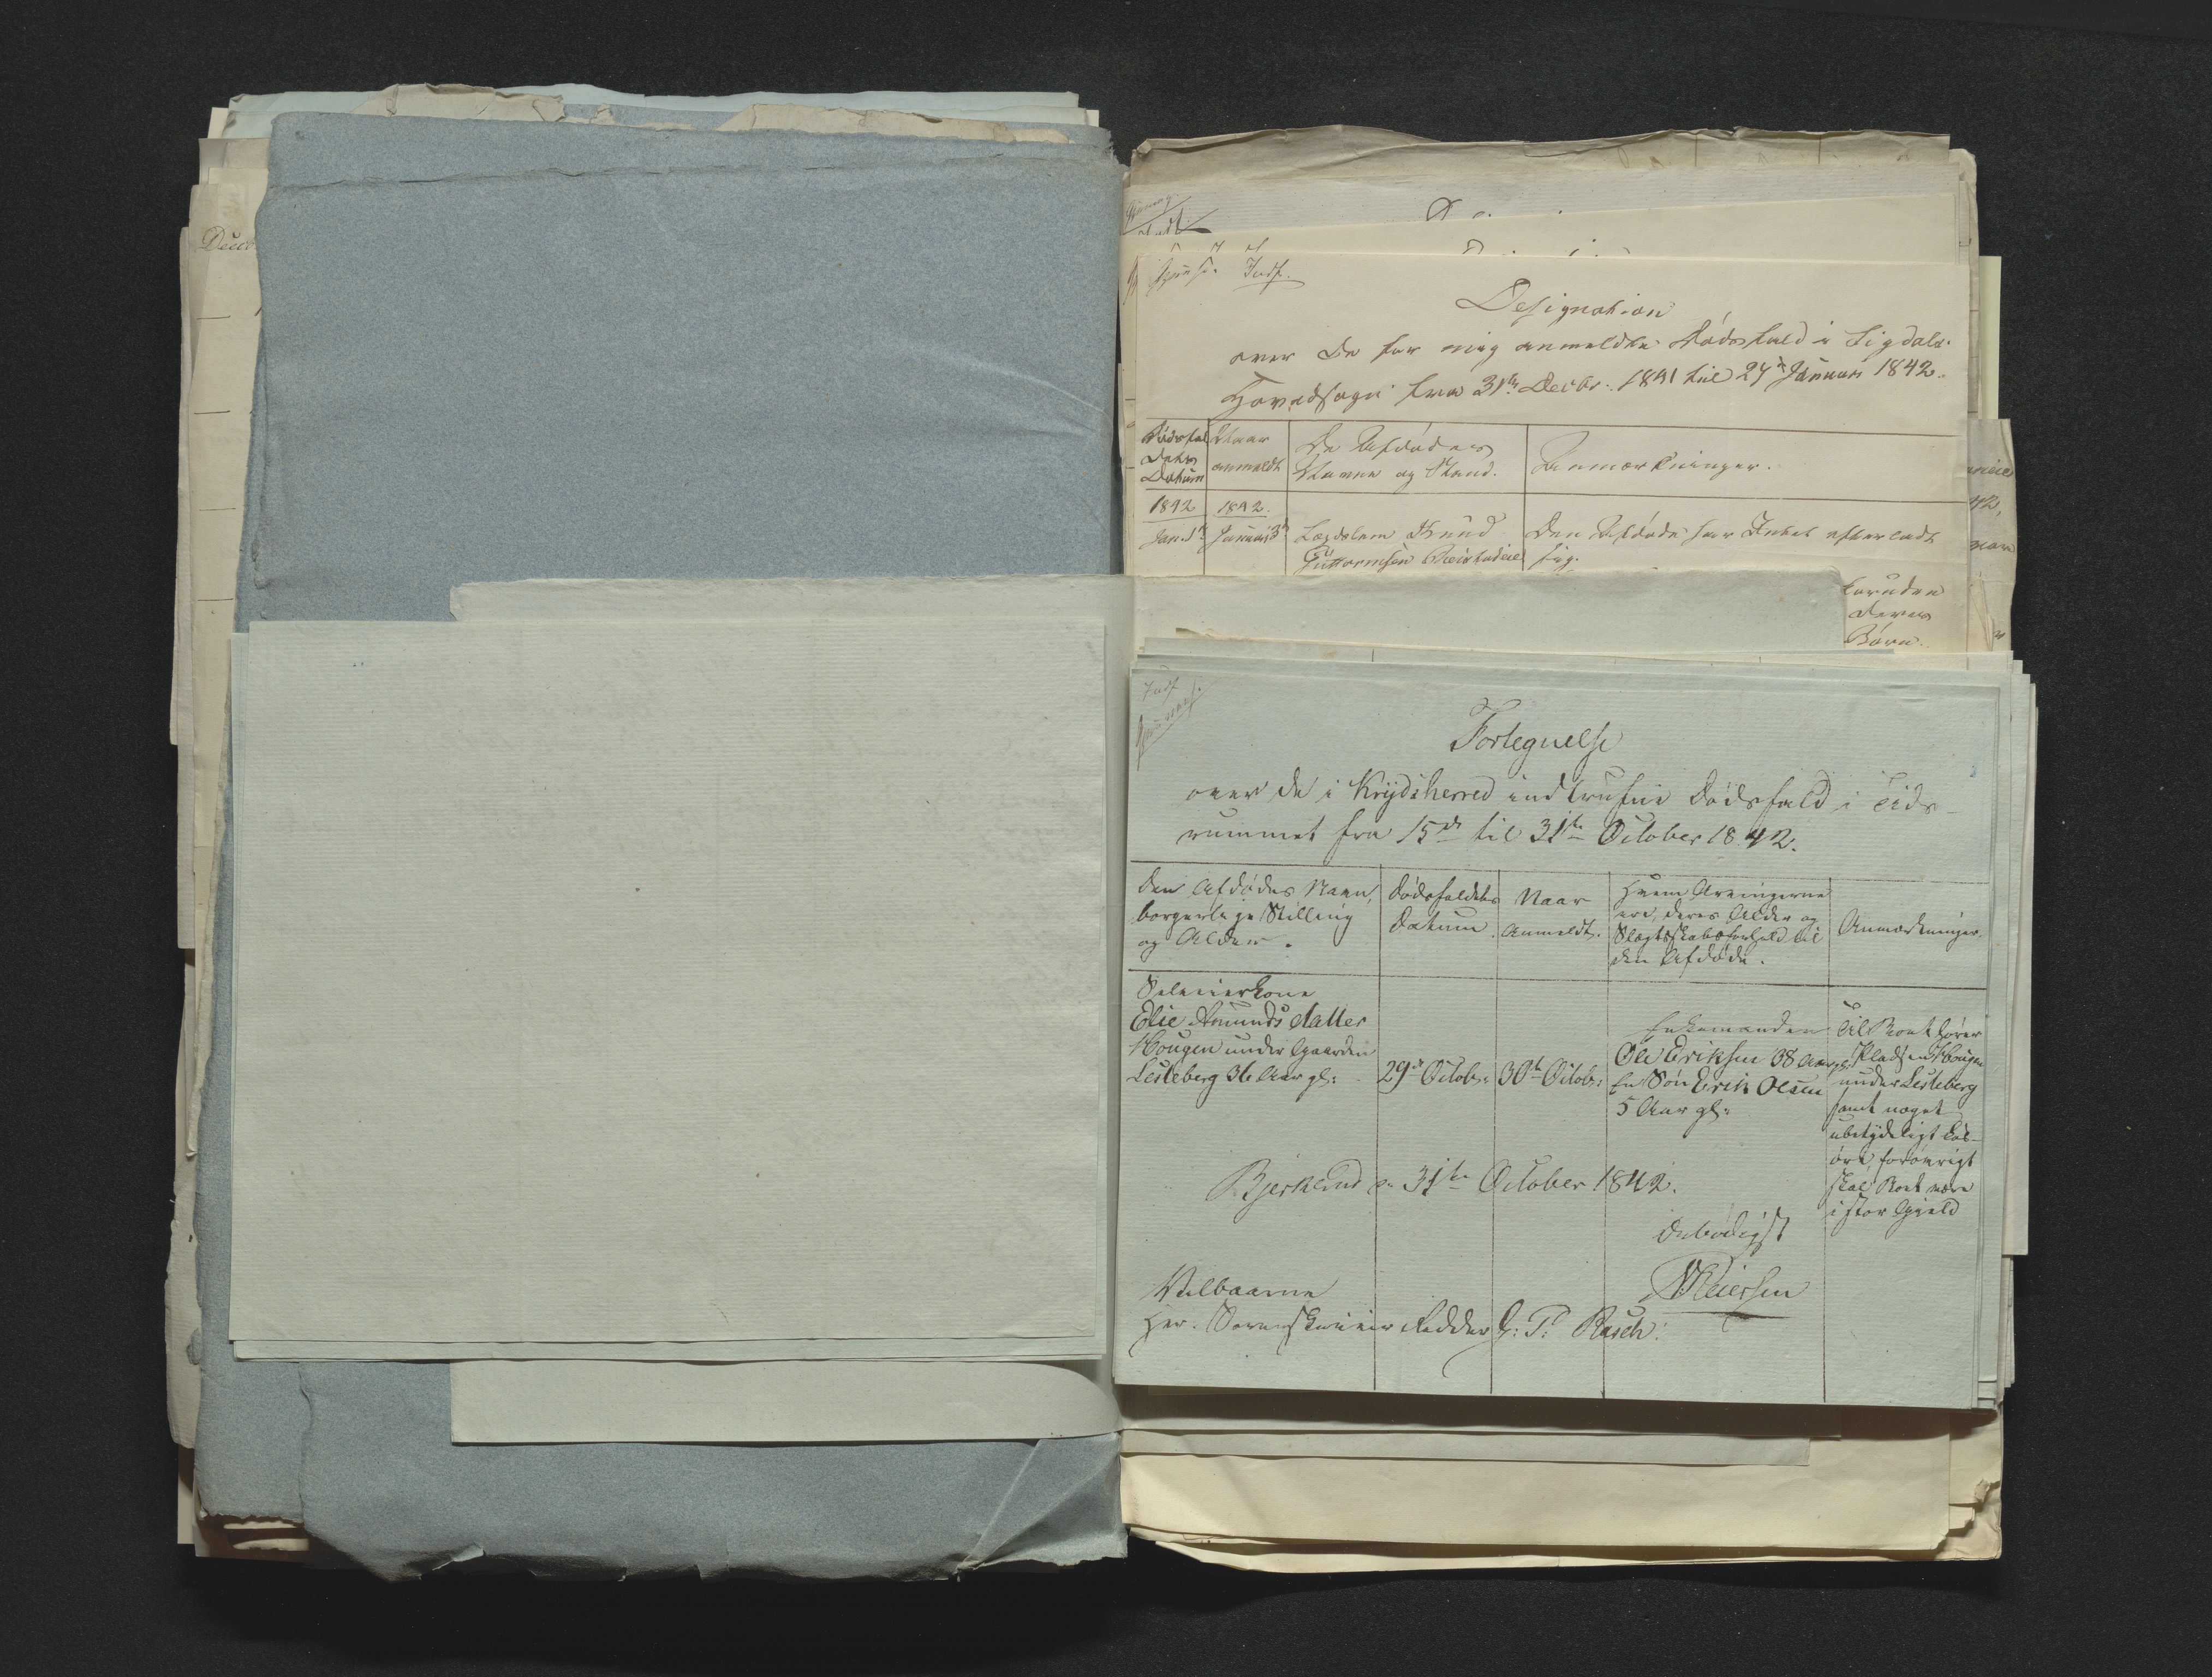 Decbr
Designation
over de for mig anmeldte Dødsfald i Sigdals
Hovedsogn fra 31te Decbr. 1841 til 27de Januari 1842.
Dødsfal
dets
Datum
Naar
anmeldt
De Afdødes
Navne og Stand.
Anmærkninger.
1842
1842.
Jan. 1ste
Januari 3de
Lægdslem Knud
Guttormsen
Den Afdøde har Intet efterladt
sig.
foruden
deres
Børn.
Indf
Fortegnelse
over de i Krydsherred indtrufne Dødsfald i Tids-
rummet fra 15de til 31te October 1842.
Den Afdødes Navn,
borgerlige Stilling
og Alder.
Dødsfaldets
Datum.
Naar
Anmeldt.
Hvem Arvingerne
ere, deres Alder og
Slægtskabsforhold til
den Afdøde.
Anmærkninger.
Selveierkone
Elie Amunds datter
Hougen under Gaarden
Lesteberg 36 Aar gl:
29de Octobr:
30te Octobr:
Enkemanden
Ole Eriksen 38 Aar gl:
En Søn Erik Olsen
5 Aar gl:
Til Boet hører
Pladsen Hougen
under Lesteberg
samt noget
ubetydeligt Løs-
øre, forøvrigt
skal Boet være
i stor Gjeld
Bjerkerud den 31te October 1842.
Ærbødigst
Velbaarne
Hr. Sorenskriver Ridder G: P: Rasch: